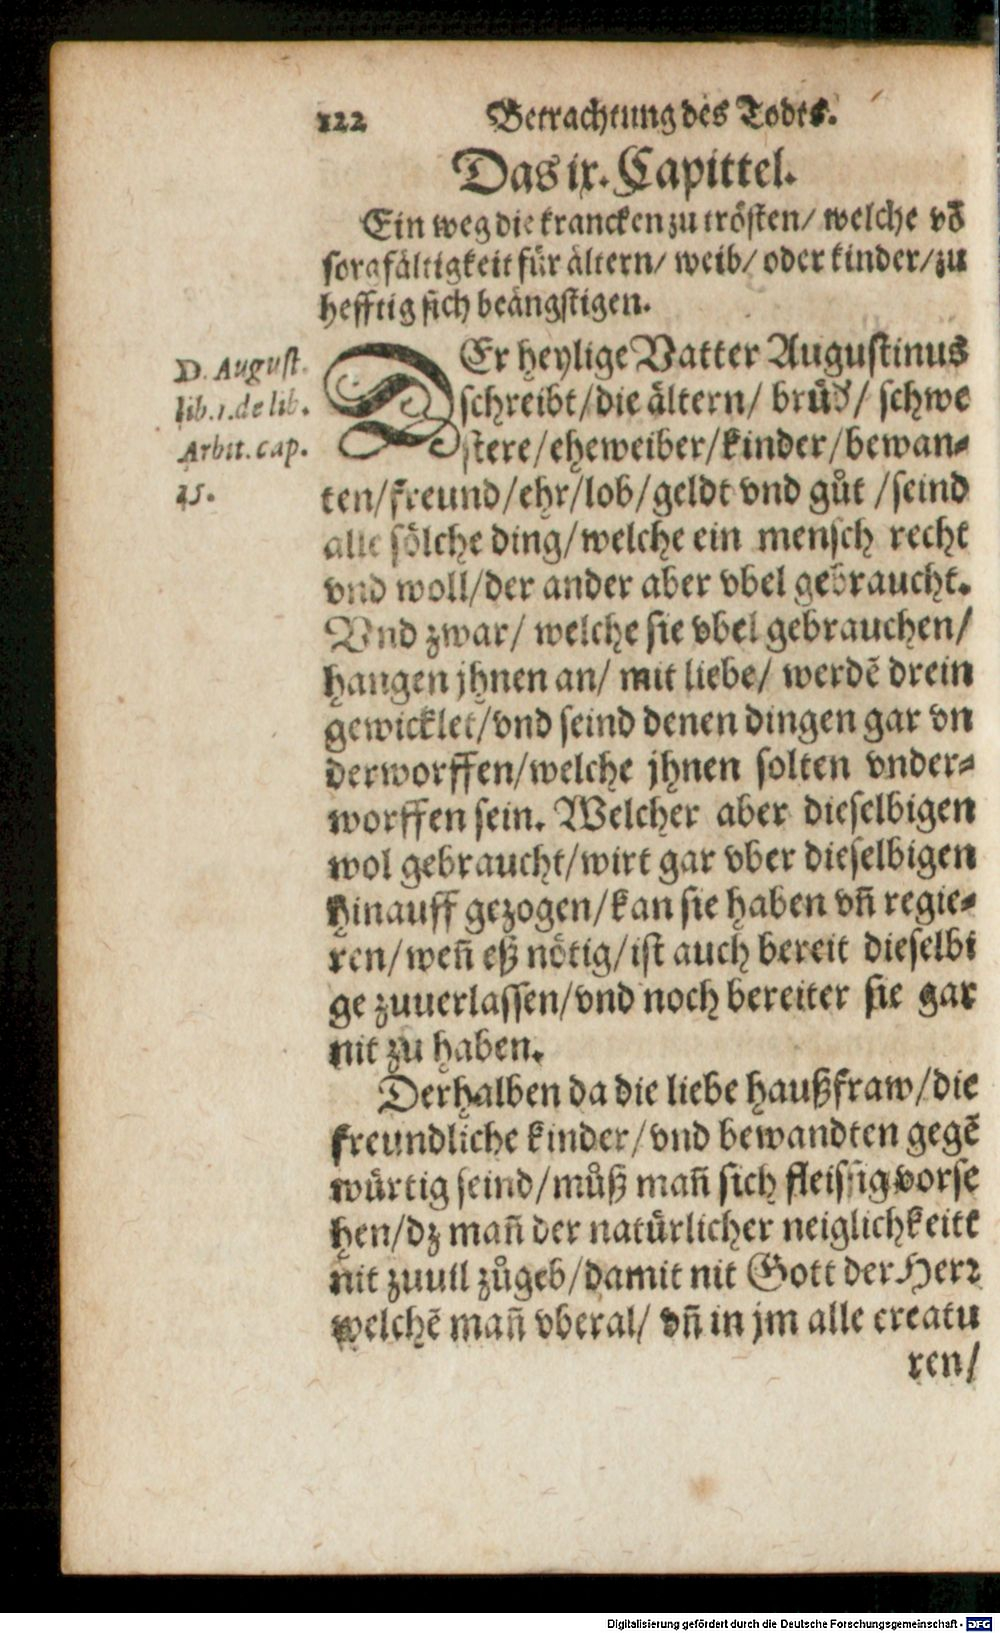 122 Betrachtung des Todts.
Das ix. Capittel.
Ein weg die krancken zu trösten/ welche vō
sorgfältigkeit für ältern/ weib/ oder kinder/zu
hefftig sich beängstigen.
D. August.
lib.1.de lib.
Arbit. cap.
15.
DEr heylige Vatter Augustinus
schreibt/die ältern/ brüd/ schwe
stere/eheweiber/kinder/bewan-
ten/freund/ehr/lob/geldt vnd gůt /seind
alle sölche ding/welche ein mensch recht
vnd woll/der ander aber vbel gebraucht.
Vnd zwar/ welche sie vbel gebrauchen/
hangen jhnen an/ mit liebe/ werdē drein
gewicklet/vnd seind denen dingen gar vn
derworffen/welche jhnen solten vnder-
worffen sein. Welcher aber dieselbigen
wol gebraucht/wirt gar vber dieselbigen
hinauff gezogen/kan sie haben vn̄ regie-
ren/wen̄ eß nötig/ist auch bereit dieselbi
ge zuuerlassen/vnd noch bereiter sie gar
nit zu haben.
Derhalben da die liebe haußfraw/die
freundliche kinder/vnd bewandten gegē
würtig seind/můß man̄ sich fleissig vorse
hen/dz man̄ der natürlicher neiglichkeitt
nit zuuil zůgeb/damit nit Gott der Herr
welchē man̄ vberal/ vn̄ in jm alle creatu
ren/
Digitalisierung gefördert durch die Deutsche Forschungsgemeinschaft - DFG